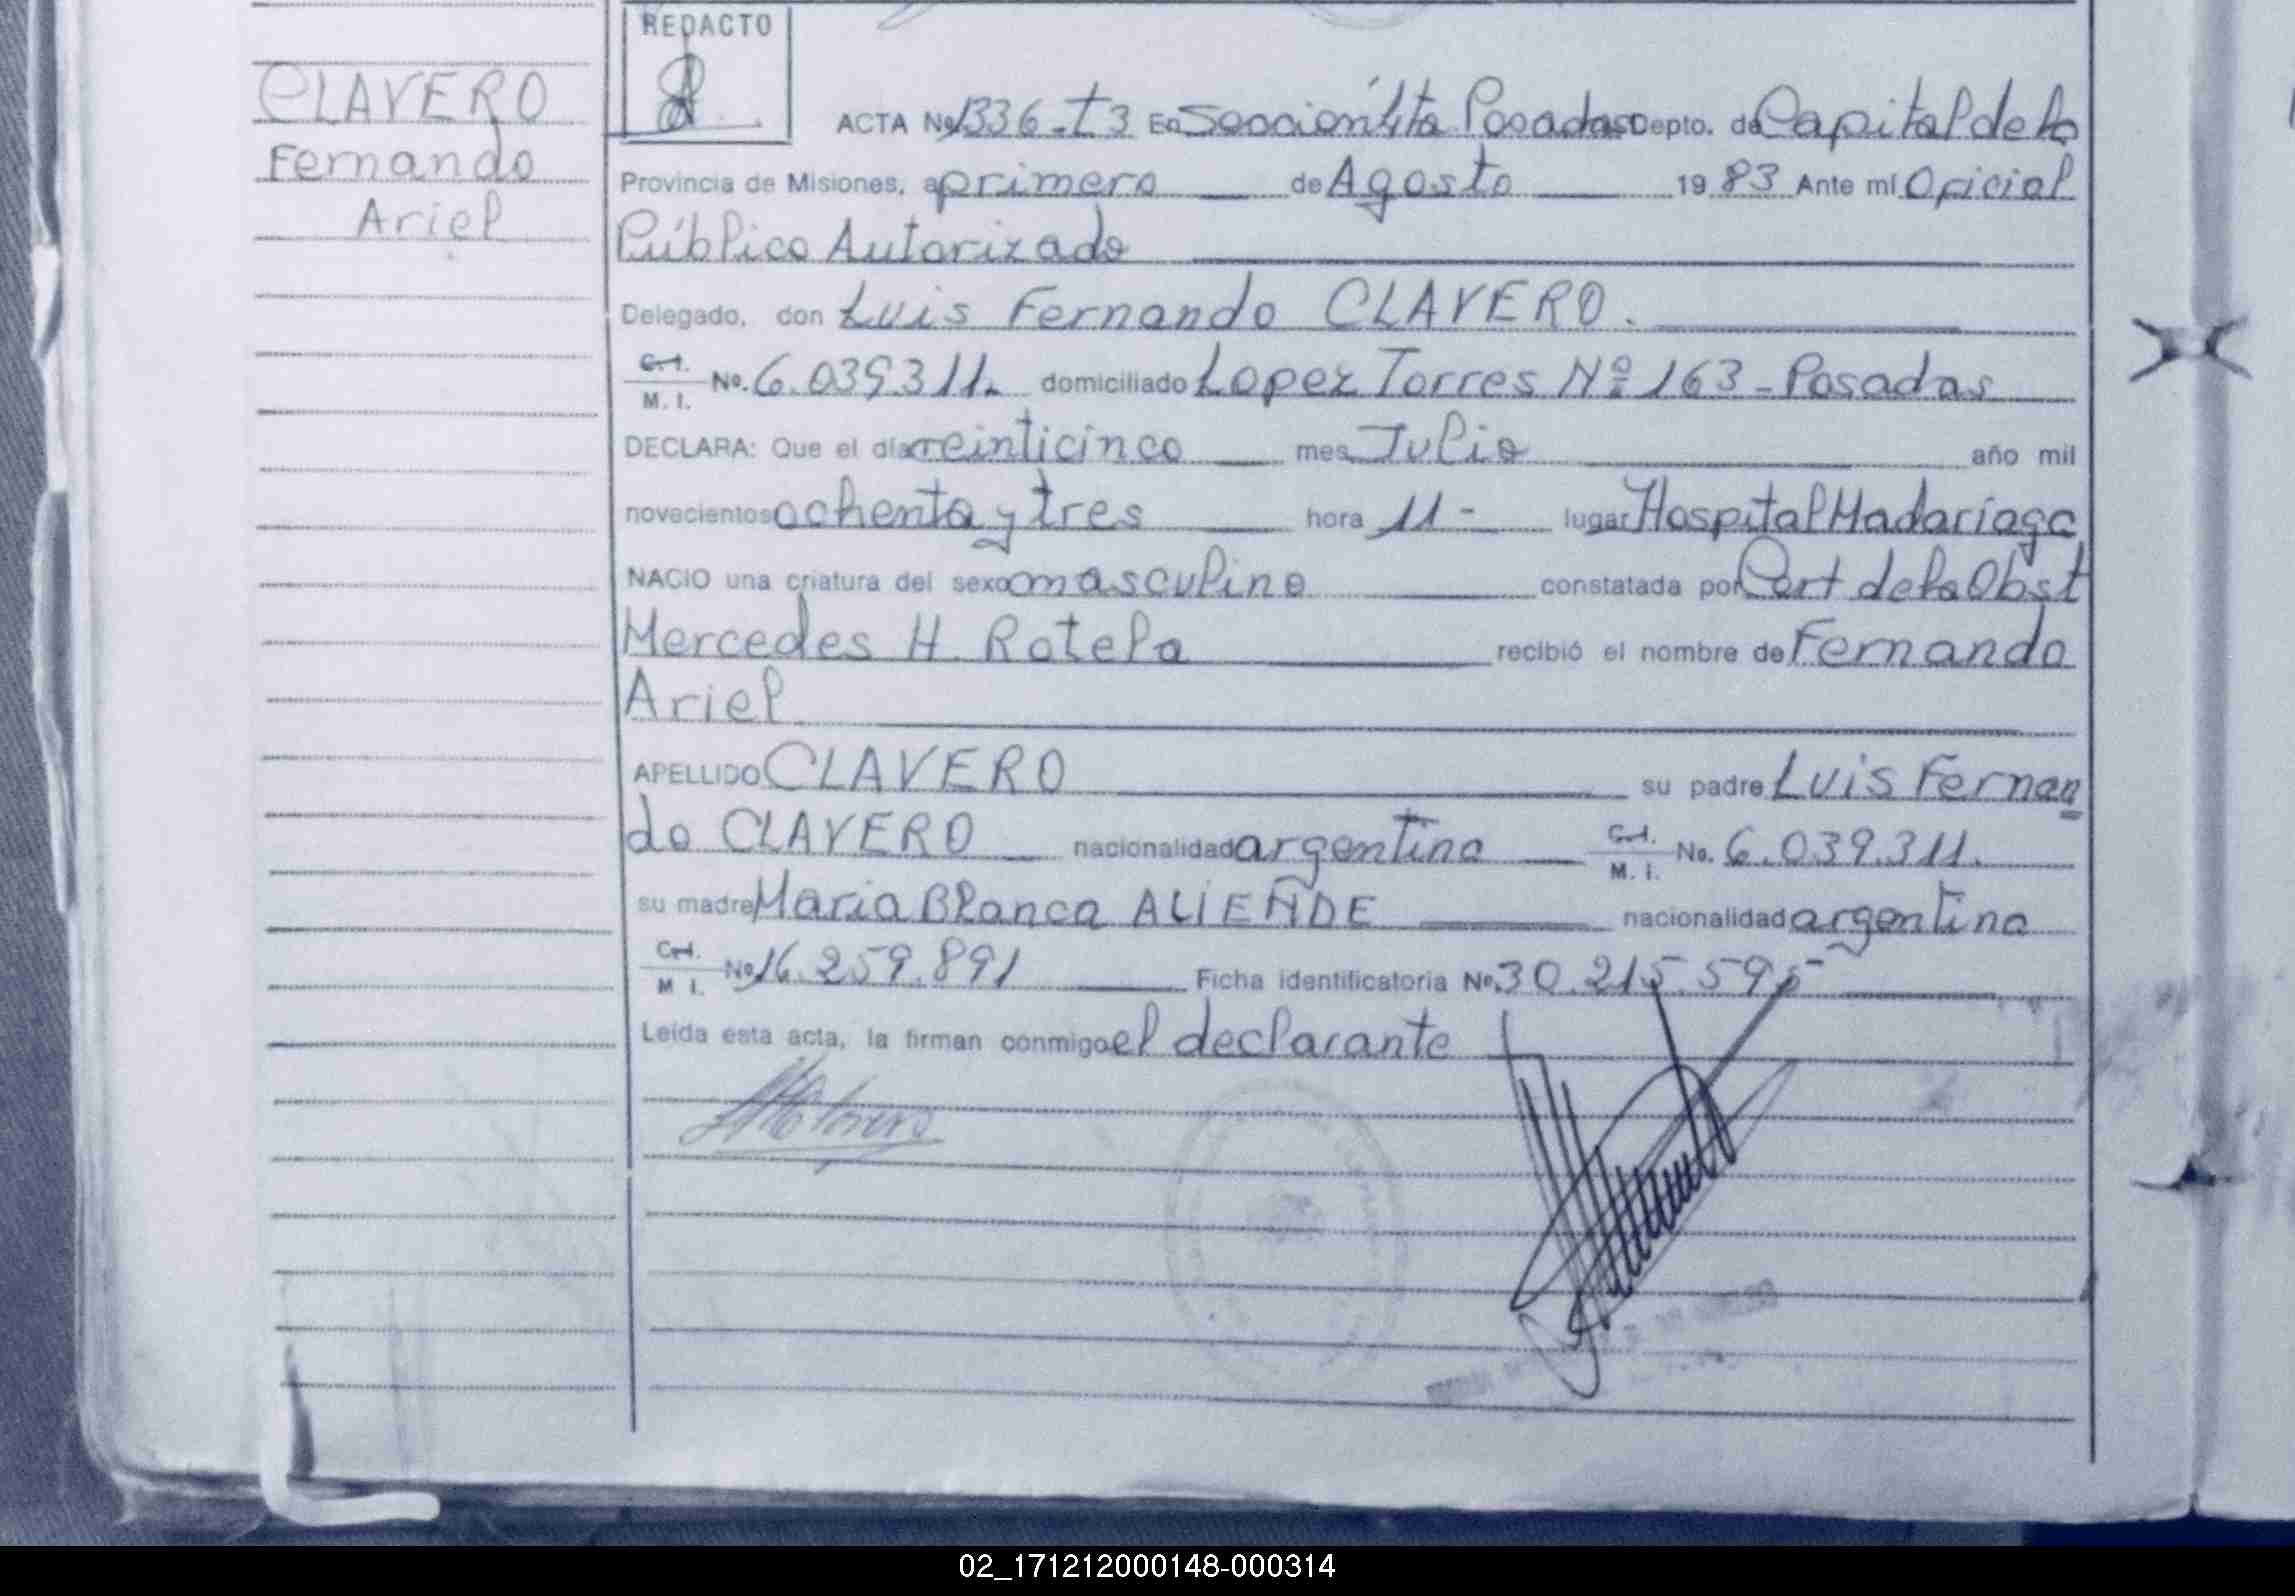 CLAVERO
Fernando
Ariel
REDACTO
ACTA Nº 1336-T3 En Sección 4ta Posadas Depto. de Capital de la
Provincia de Misiones, a primero de Agosto 1983 Ante mí Oficial
Público Autorizado
Delegado, don Luis Fernando CLAVERO.
M. I. No. 6.039.311. domiciliado Lopez Torres Nº 163 - Posadas
DECLARA: Que el día veinticinco mes Julio año mil
novecientos ochenta y tres hora 11- lugar Hospital Madariaga
NACIO una criatura del sexo masculino constatada por Cert de la Obst
Mercedes H. Rotela recibió el nombre de Fernando
Ariel
APELLIDO CLAVERO su padre Luis Fernan
do CLAVERO nacionalidad argentina M. I. No. 6.039.311.
su madre Maria Blanca ALIENDE nacionalidad argentina
M. I. Nº 16.259.891 Ficha identificatoria Nº 30.215.595
Leída esta acta, la firman conmigo el declarante
02_171212000148-000314